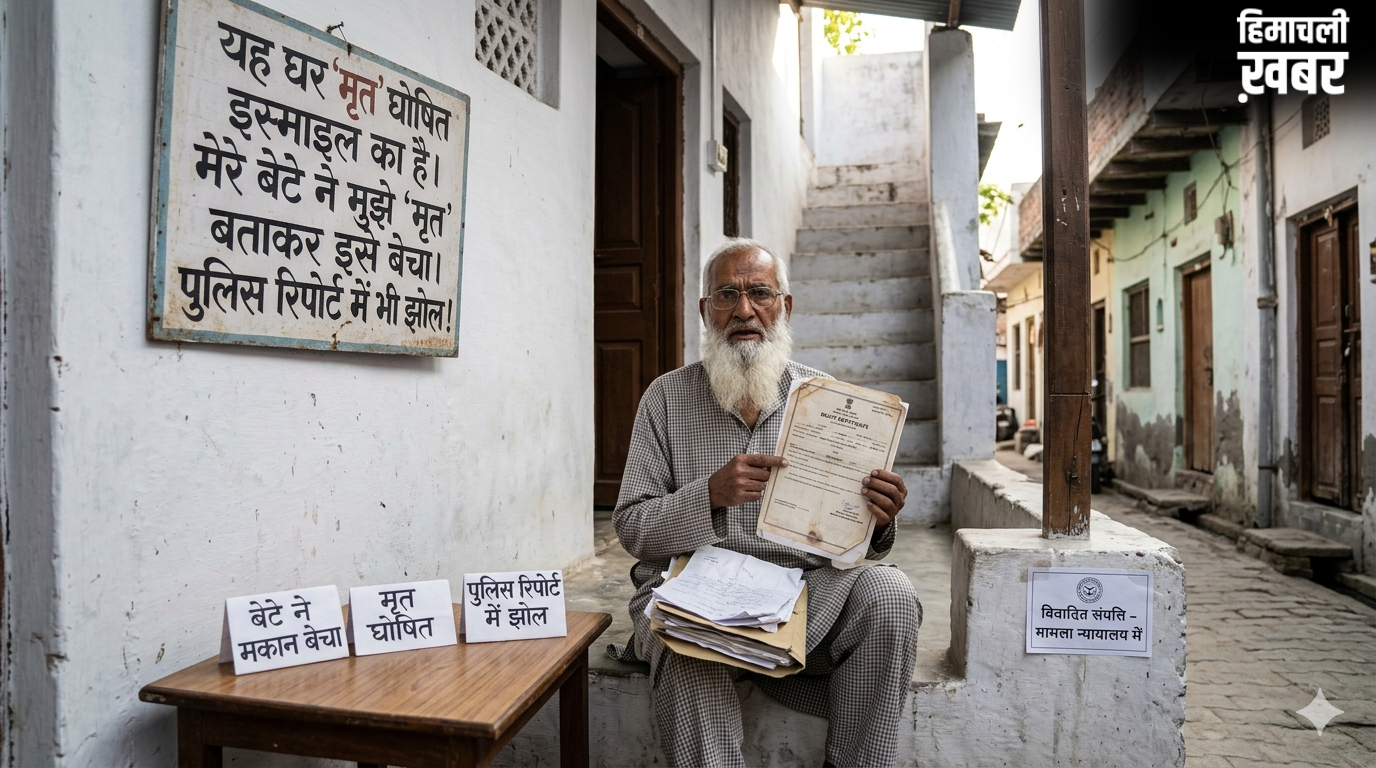 यह घर 'मृत' घोषित
इस्माइल का है।
मेरे बेटे ने मुझे 'मृत'
बताकर इसे बेचा।
पुलिस रिपोर्ट में भी झोल!
हिमाचली
ख़बर
बेटे ने
मकान बेचा
मृत
घोषित
पुलिस रिपोर्ट
में झोल
विवादित संपत्ति -
मामला न्यायालय में